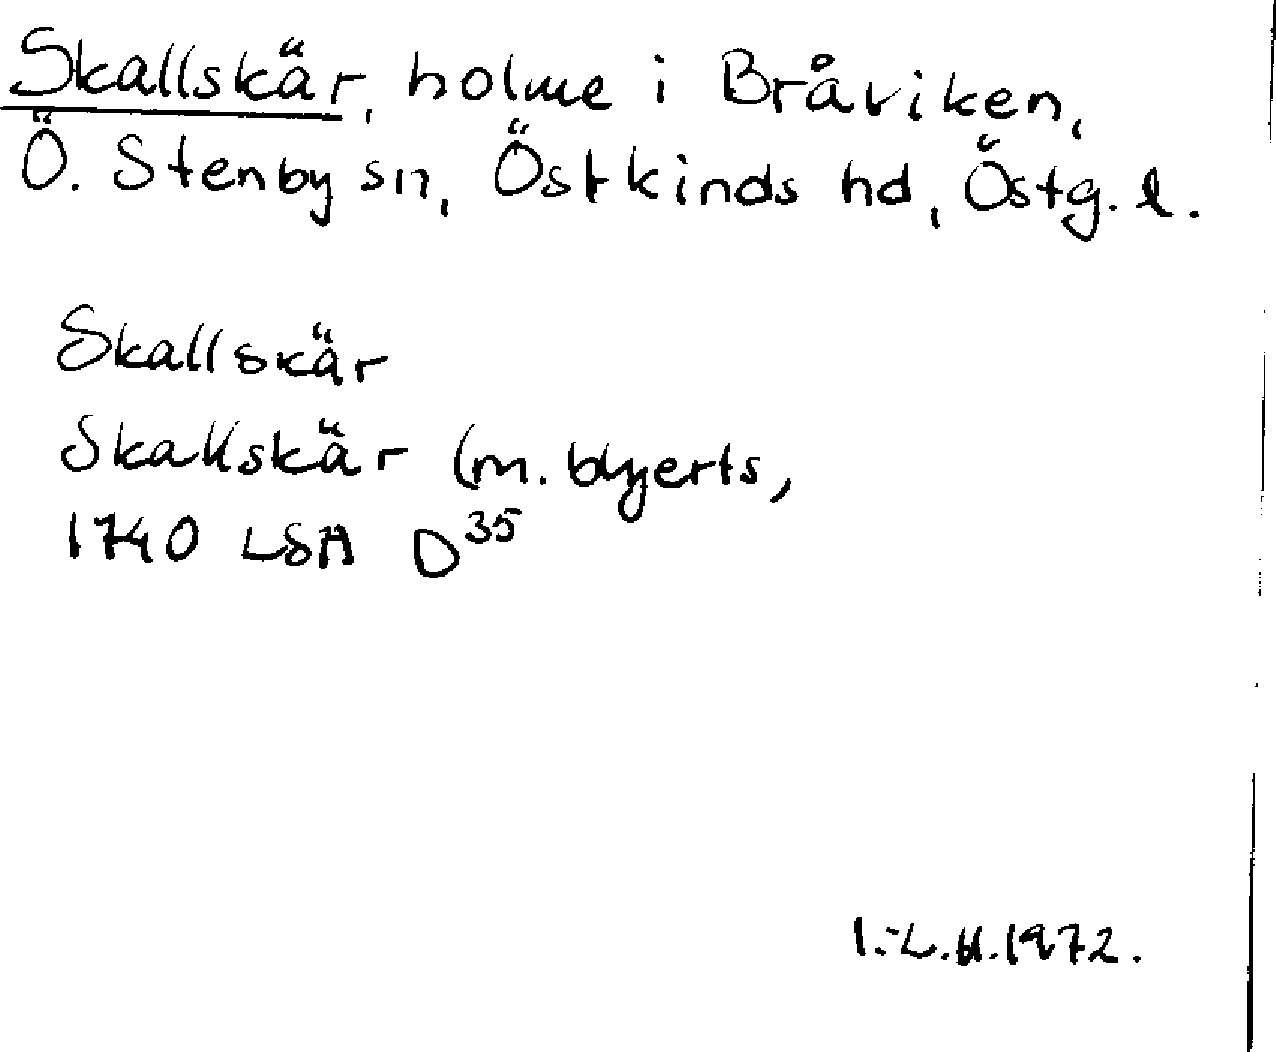 Skallskär, holme i Bråviken,
Ö. Stenby sn, Östkinds hd, Östg. l.
Skallskär
Skallskär (m. blyerts,
1740 LSA D³⁵
I.-L.H.1972.